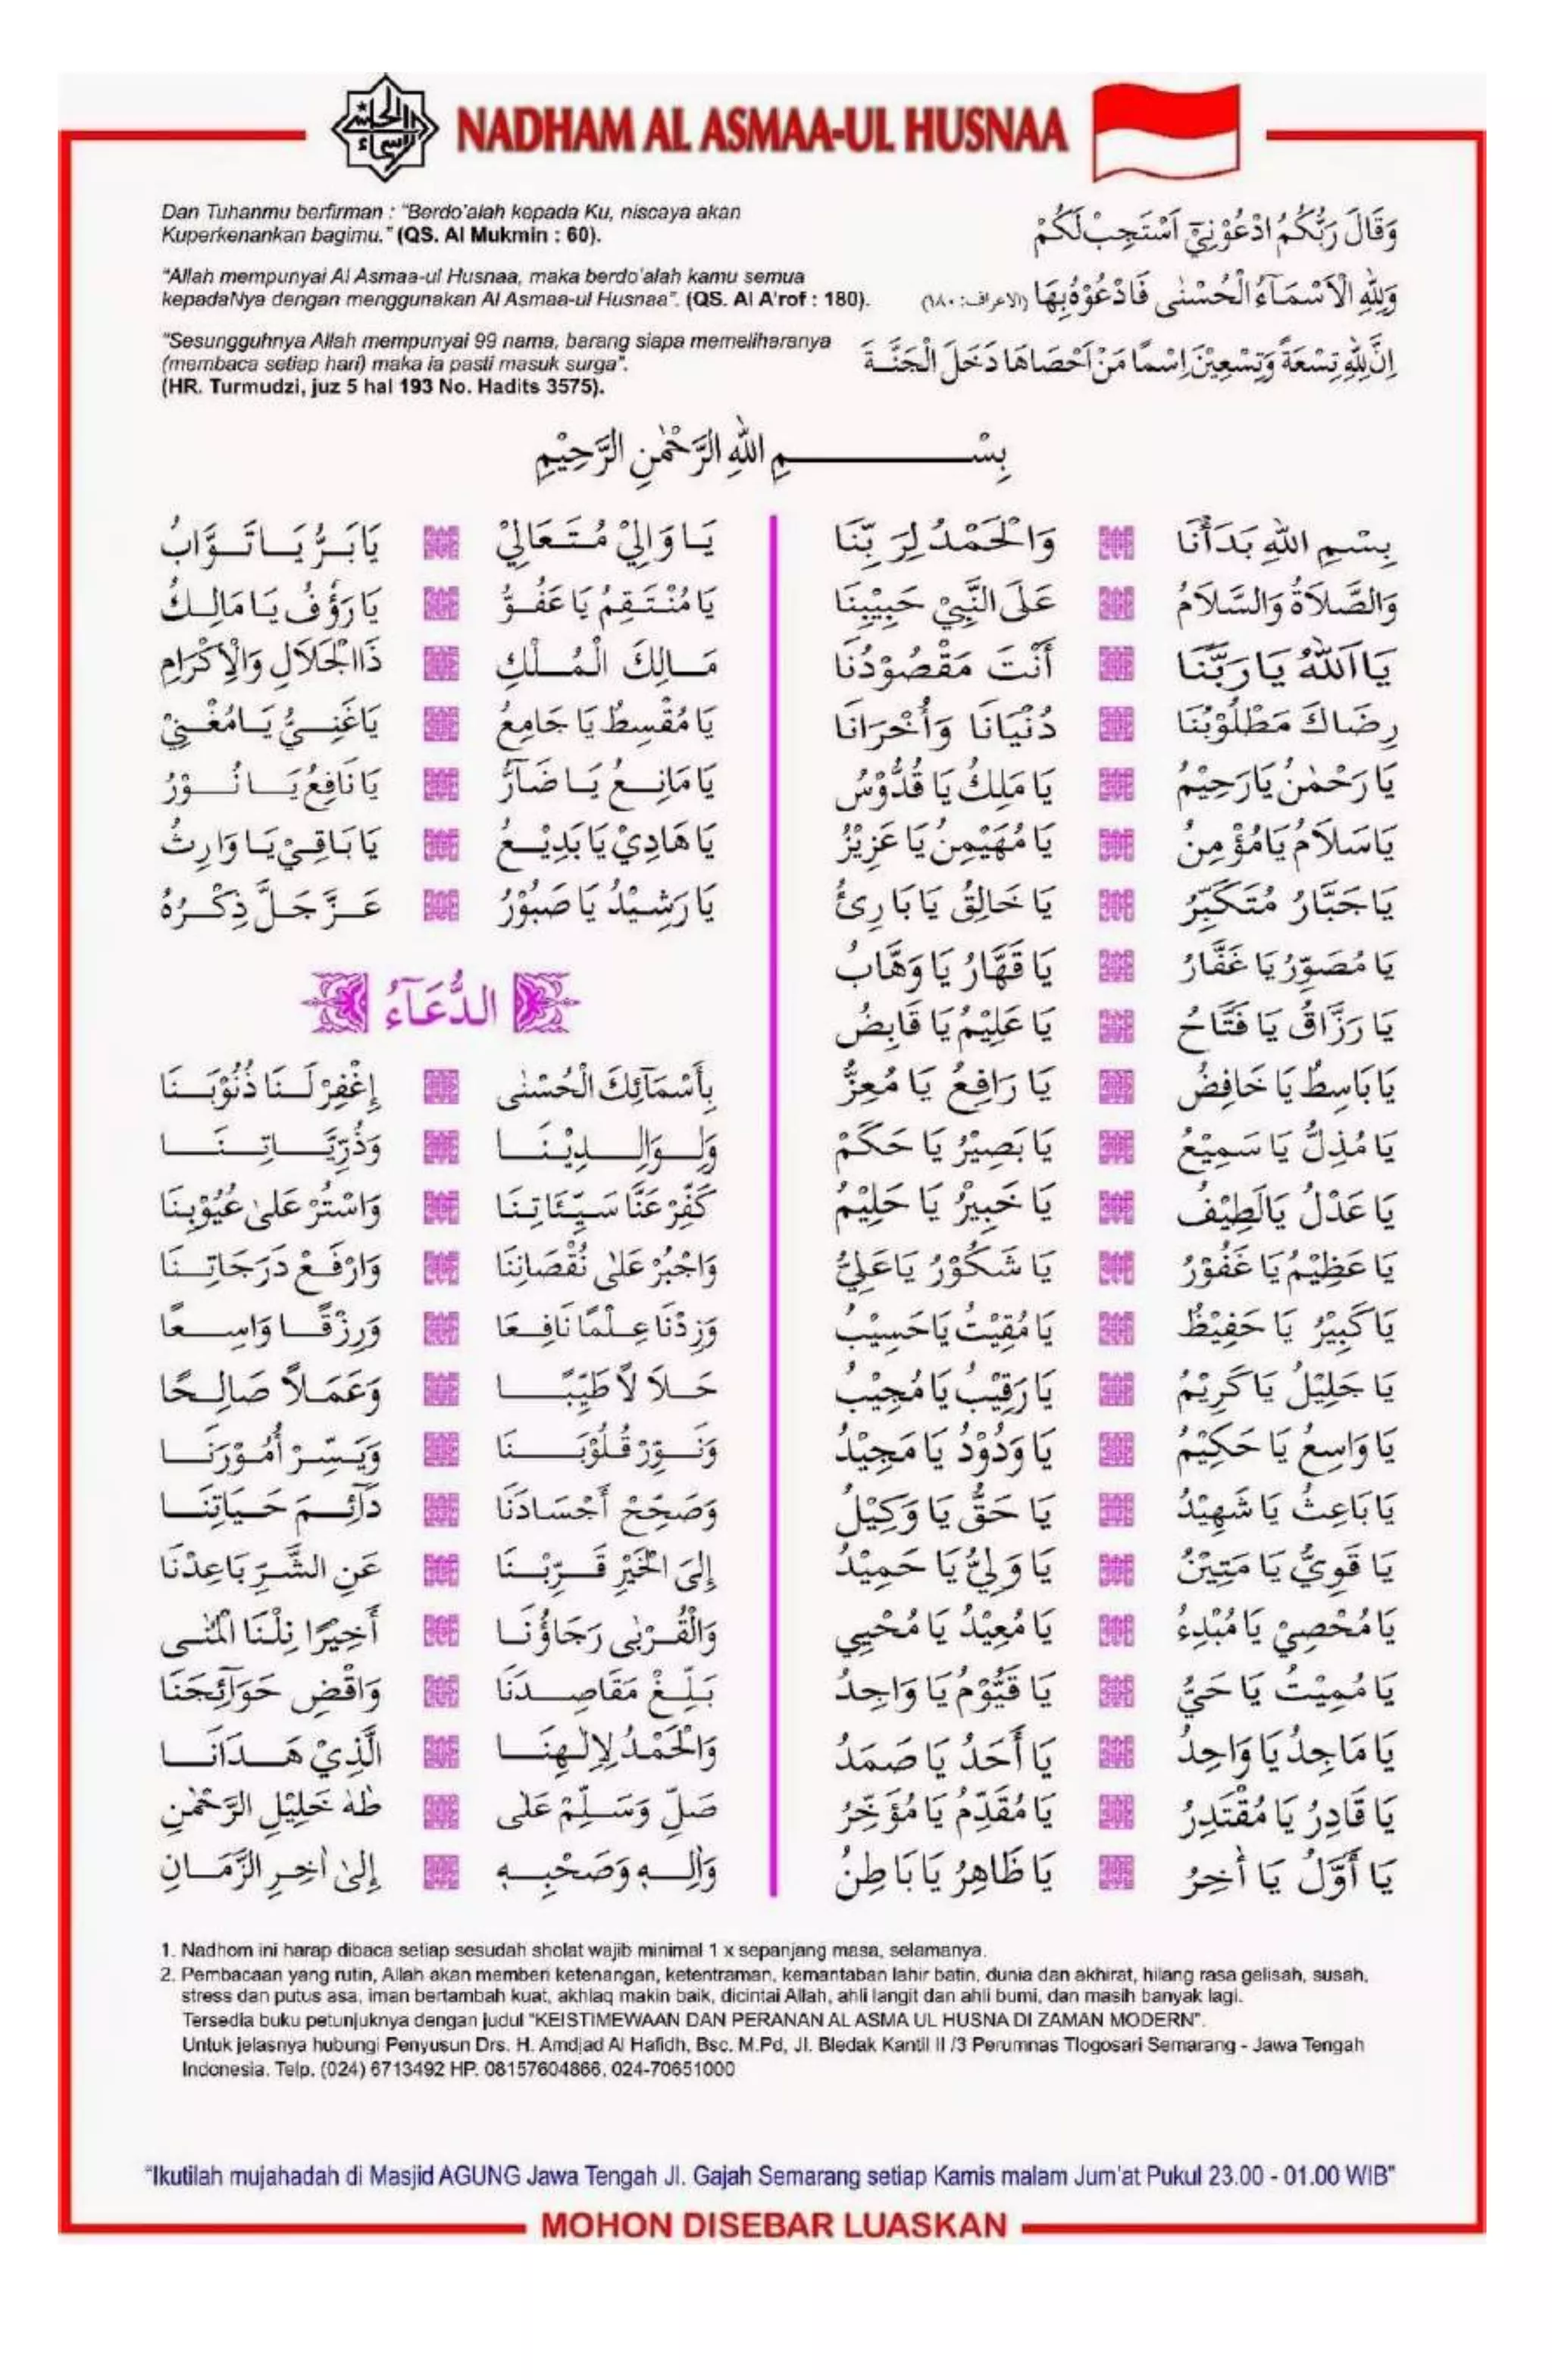 NADHAM AL ASMAA-UL HUSNAA
Dan Tuhanmu berfirman : "Berdo'alah kepada Ku, niscaya akan
Kuperkenankan bagimu." (QS. Al Mukmin : 60).
وَقَالَ رَبُّكُمُ ادْعُوْنِيْٓ اَسْتَجِبْ لَكُمْ
"Allah mempunyai Al Asmaa-ul Husnaa, maka berdo'alah kamu semua
kepadaNya dengan menggunakan Al Asmaa-ul Husnaa". (QS. Al A'rof : 180).
وَلِلّٰهِ الْاَسْمَآءُ الْحُسْنٰى فَادْعُوْهُ بِهَا (الاعراف: ١٨٠)
"Sesungguhnya Allah mempunyai 99 nama, barang siapa memeliharanya
(membaca setiap hari) maka ia pasti masuk surga".
(HR. Turmudzi, juz 5 hal 193 No. Hadits 3575).
اِنَّ لِلّٰهِ تِسْعَةً وَتِسْعِيْنَ اِسْمًا مَنْ اَحْصَاهَا دَخَلَ الْجَنَّةَ
بِسْمِ اللهِ الرَّحْمٰنِ الرَّحِيْمِ
بِسْمِ اللهِ بَدَأْنَا وَالْحَمْدُ لِرَبِّنَا
وَالصَّلَاةُ وَالسَّلَامُ عَلَى النَّبِيْ حَبِيْبِنَا
يَا اَللهُ يَا رَبَّنَا أَنْتَ مَقْصُوْدُنَا
رِضَاكَ مَطْلُوْبُنَا دُنْيَانَا وَأُخْرَانَا
يَا رَحْمٰنُ يَا رَحِيْمُ يَا مَلِكُ يَا قُدُّوْسُ
يَا سَلَامُ يَا مُؤْمِنُ يَا مُهَيْمِنُ يَا عَزِيْزُ
يَا جَبَّارُ مُتَكَبِّرُ يَا خَالِقُ يَا بَارِئُ
يَا مُصَوِّرُ يَا غَفَّارُ يَا قَهَّارُ يَا وَهَّابُ
يَا رَزَّاقُ يَا فَتَّاحُ يَا عَلِيْمُ يَا قَابِضُ
يَا بَاسِطُ يَا خَافِضُ يَا رَافِعُ يَا مُعِزُّ
يَا مُذِلُّ يَا سَمِيْعُ يَا بَصِيْرُ يَا حَكَمْ
يَا عَدْلُ يَا لَطِيْفُ يَا خَبِيْرُ يَا حَلِيْمُ
يَا عَظِيْمُ يَا غَفُوْرُ يَا شَكُوْرُ يَا عَلِيُّ
يَا كَبِيْرُ يَا حَفِيْظُ يَا مُقِيْتُ يَا حَسِيْبُ
يَا جَلِيْلُ يَا كَرِيْمُ يَا رَقِيْبُ يَا مُجِيْبُ
يَا وَاسِعُ يَا حَكِيْمُ يَا وَدُوْدُ يَا مَجِيْدُ
يَا بَاعِثُ يَا شَهِيْدُ يَا حَقُّ يَا وَكِيْلُ
يَا قَوِيُّ يَا مَتِيْنُ يَا وَلِيُّ يَا حَمِيْدُ
يَا مُحْصِيْ يَا مُبْدِءُ يَا مُعِيْدُ يَا مُحْيِي
يَا مُمِيْتُ يَا حَيُّ يَا قَيُّوْمُ يَا وَاجِدُ
يَا مَاجِدُ يَا وَاحِدُ يَا أَحَدُ يَا صَمَدُ
يَا قَادِرُ يَا مُقْتَدِرُ يَا مُقَدِّمُ يَا مُؤَخِّرُ
يَا أَوَّلُ يَا أٰخِرُ يَا ظَاهِرُ يَا بَاطِنُ
يَا وَالِيْ مُتَعَالِيْ يَا بَرُّ يَا تَوَّابُ
يَا مُنْتَقِمُ يَا عَفُوُّ يَا رَؤُفُ يَا مَالِكُ
مَالِكَ الْمُلْكِ ذَاالْجَلَالِ وَالْاِكْرَامِ
يَا مُقْسِطُ يَا جَامِعُ يَا غَنِيُّ يَا مُغْنِيْ
يَا مَانِعُ يَا ضَآرُّ يَا نَافِعُ يَا نُوْرُ
يَا هَادِيْ يَا بَدِيْعُ يَا بَاقِيْ يَا وَارِثُ
يَا رَشِيْدُ يَا صَبُوْرُ عَزَّ جَلَّ ذِكْرُهُ
الدُّعَآءُ
بِأَسْمَآئِكَ الْحُسْنٰى إِغْفِرْ لَنَا ذُنُوْبَنَا
وَلِوَالِدِيْنَا وَذُرِّيَّاتِنَا
كَفِّرْ عَنَّا سَيِّئَاتِنَا وَاسْتُرْ عَلٰى عُيُوْبِنَا
وَاجْبُرْ عَلٰى نُقْصَانِنَا وَارْفَعْ دَرَجَاتِنَا
وَزِدْنَا عِلْمًا نَافِعَا وَرِزْقًا وَاسِعًا
حَلَالًا طَيِّبًا وَعَمَلًا صَالِحًا
وَنَوِّرْ قُلُوْبَنَا وَيَسِّرْ أُمُوْرَنَا
وَصَحِّحْ أَجْسَادَنَا دَآئِمَ حَيَاتِنَا
إِلَى الْخَيْرِ قَرِّبْنَا عَنِ الشَّرِّ بَاعِدْنَا
وَالْقُرْبٰى رَجَاؤُنَا أَخِيْرًا نِلْنَا الْمُنٰى
بَلِّغْ مَقَاصِدَنَا وَاقْضِ حَوَآئِجَنَا
وَالْحَمْدُ لِاِلٰهِنَا الَّذِيْ هَدَانَا
صَلِّ وَسَلِّمْ عَلٰى طٰهٰ خَلِيْلِ الرَّحْمٰنِ
وَاٰلِهٖ وَصَحْبِهٖ إِلٰى اٰخِرِ الزَّمَانِ
1. Nadhom ini harap dibaca setiap sesudah sholat wajib minimal 1 x sepanjang masa, selamanya.
2. Pembacaan yang rutin, Allah akan memberi ketenangan, ketentraman, kemantaban lahir batin, dunia dan akhirat, hilang rasa gelisah, susah,
stress dan putus asa, iman bertambah kuat, akhlaq makin baik, dicintai Allah, ahli langit dan ahli bumi, dan masih banyak lagi.
Tersedia buku petunjuknya dengan judul "KEISTIMEWAAN DAN PERANAN AL ASMA UL HUSNA DI ZAMAN MODERN".
Untuk jelasnya hubungi Penyusun Drs. H. Amdjad Al Hafidh, Bsc. M.Pd, Jl. Bledak Kantil II /3 Perumnas Tlogosari Semarang - Jawa Tengah
Indonesia. Telp. (024) 6713492 HP. 08157604866, 024-70651000
"Ikutilah mujahadah di Masjid AGUNG Jawa Tengah Jl. Gajah Semarang setiap Kamis malam Jum'at Pukul 23.00 - 01.00 WIB"
MOHON DISEBAR LUASKAN